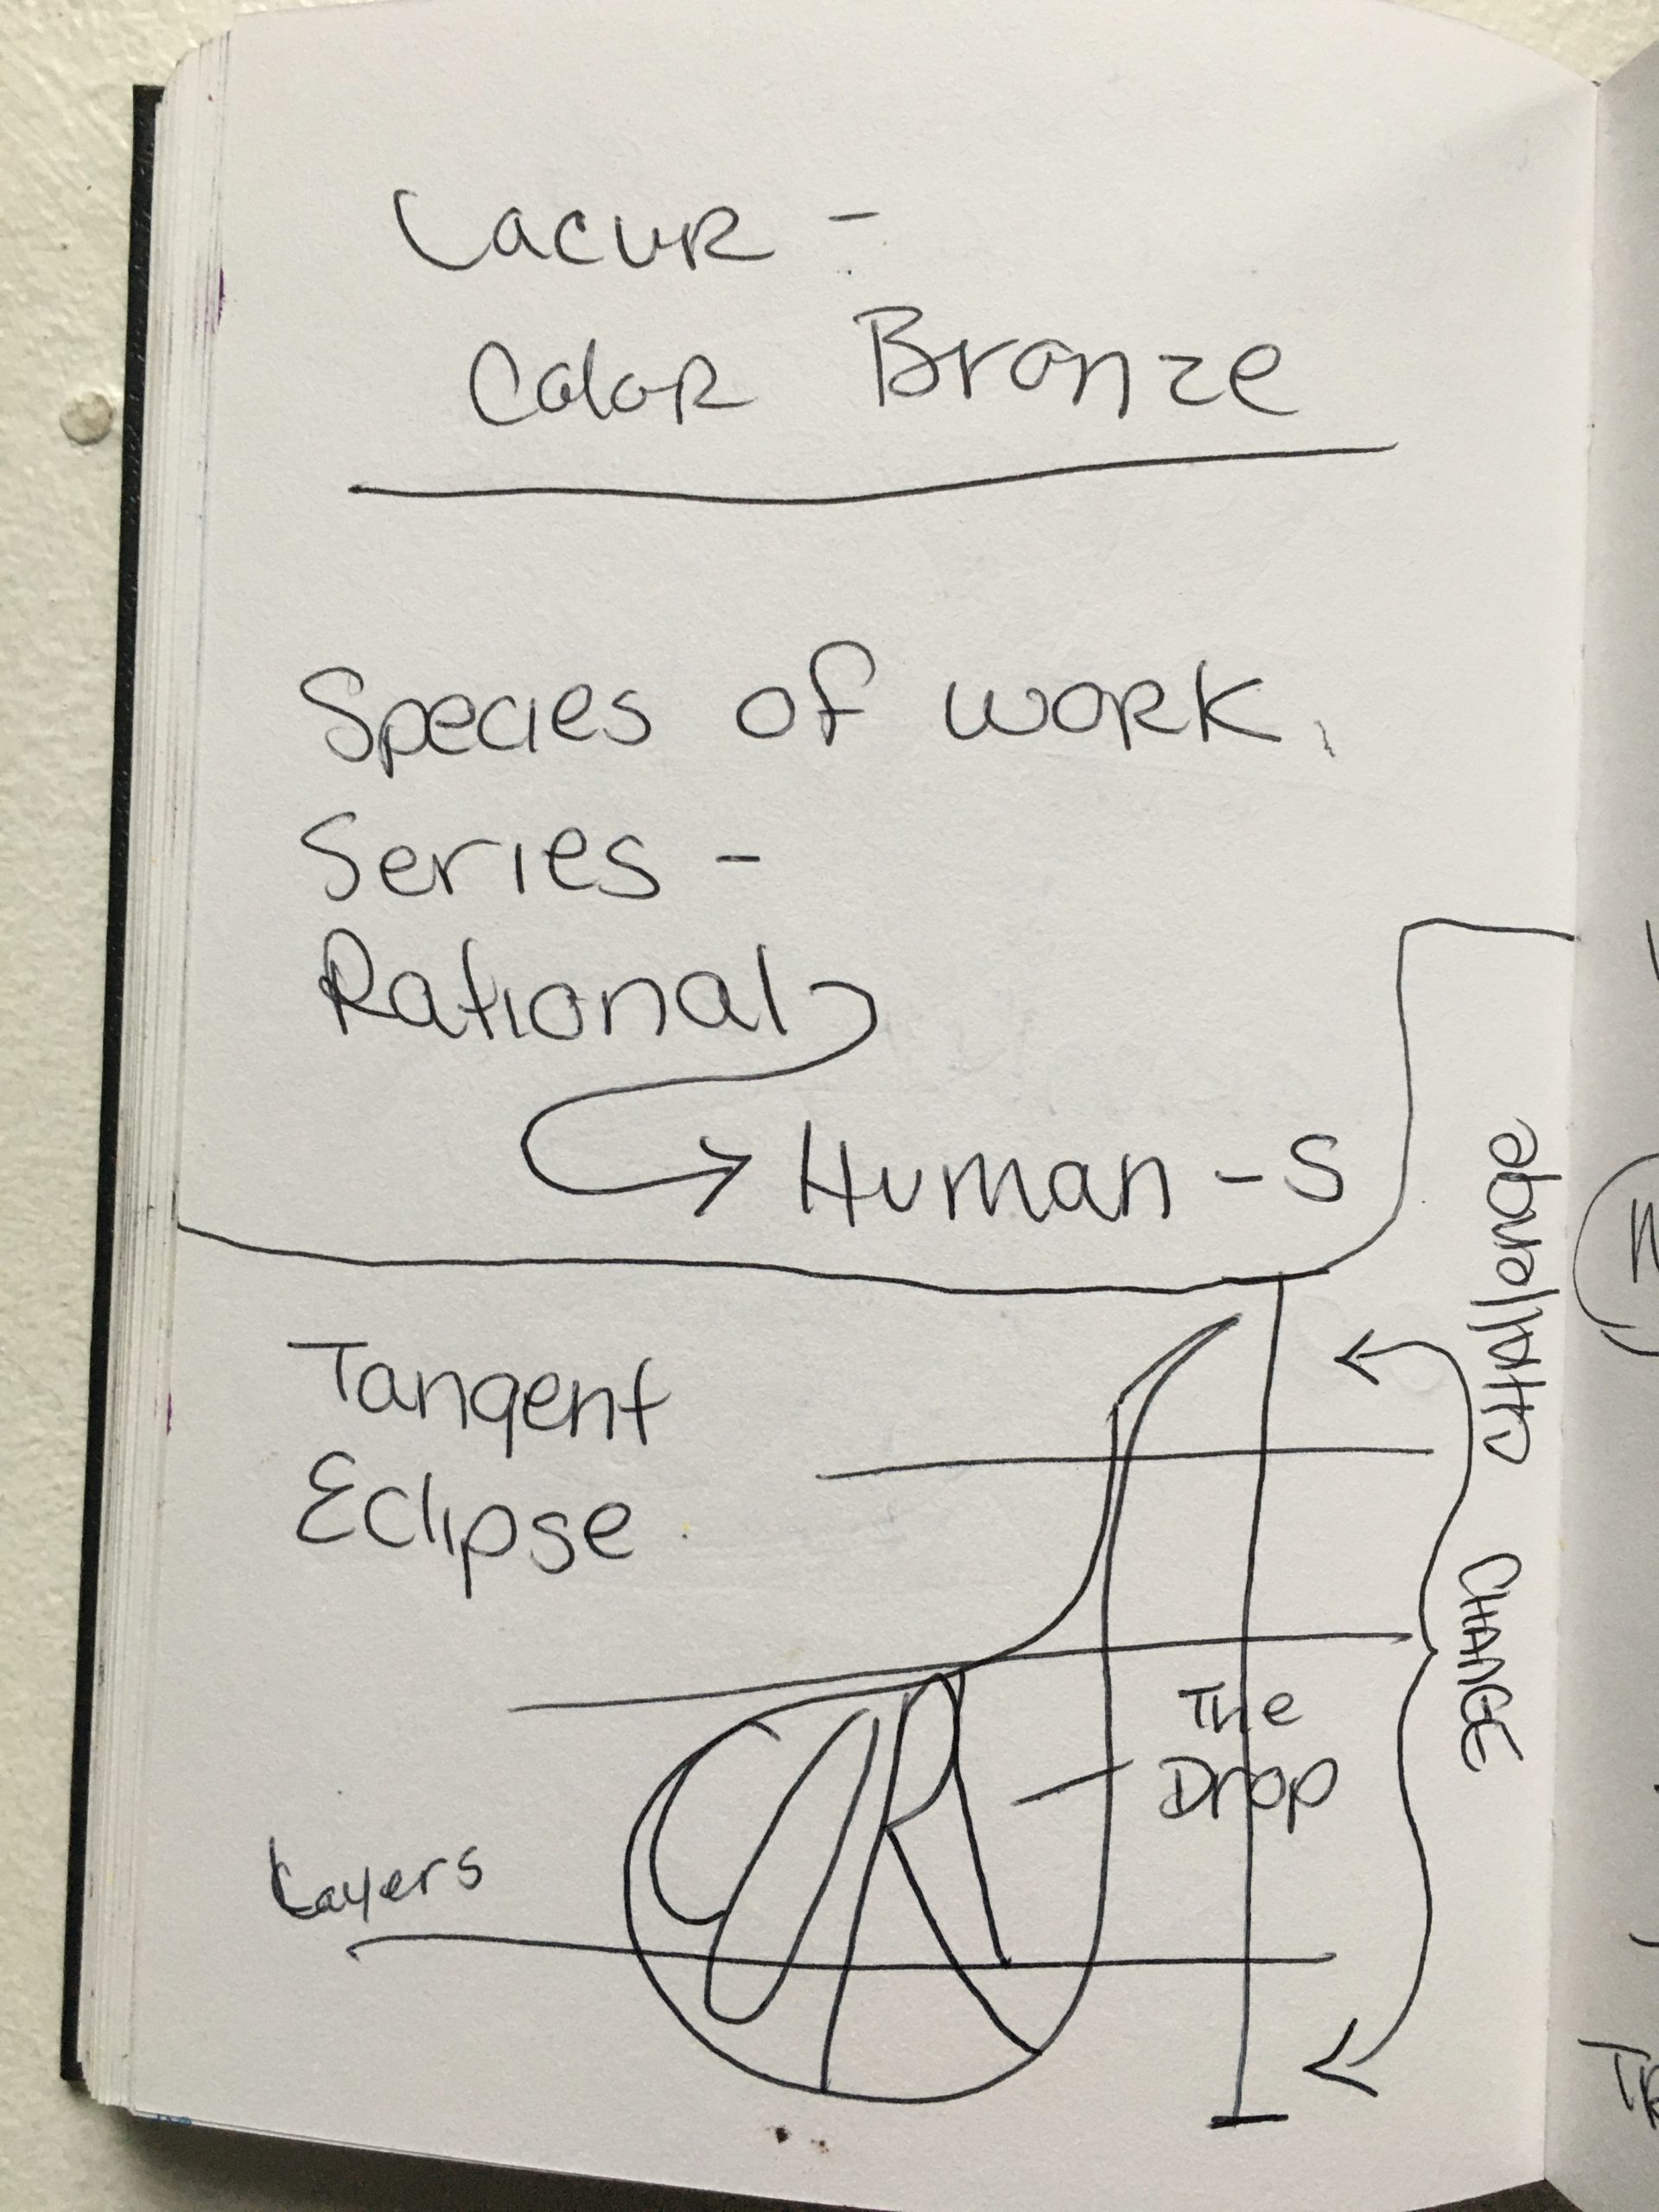 Lacur -
Color Bronze
Species of work.
Series -
Rational
Human - S
Tangent
Eclipse
CHAllenge
CHANGE
The
Drop
Layers
TR